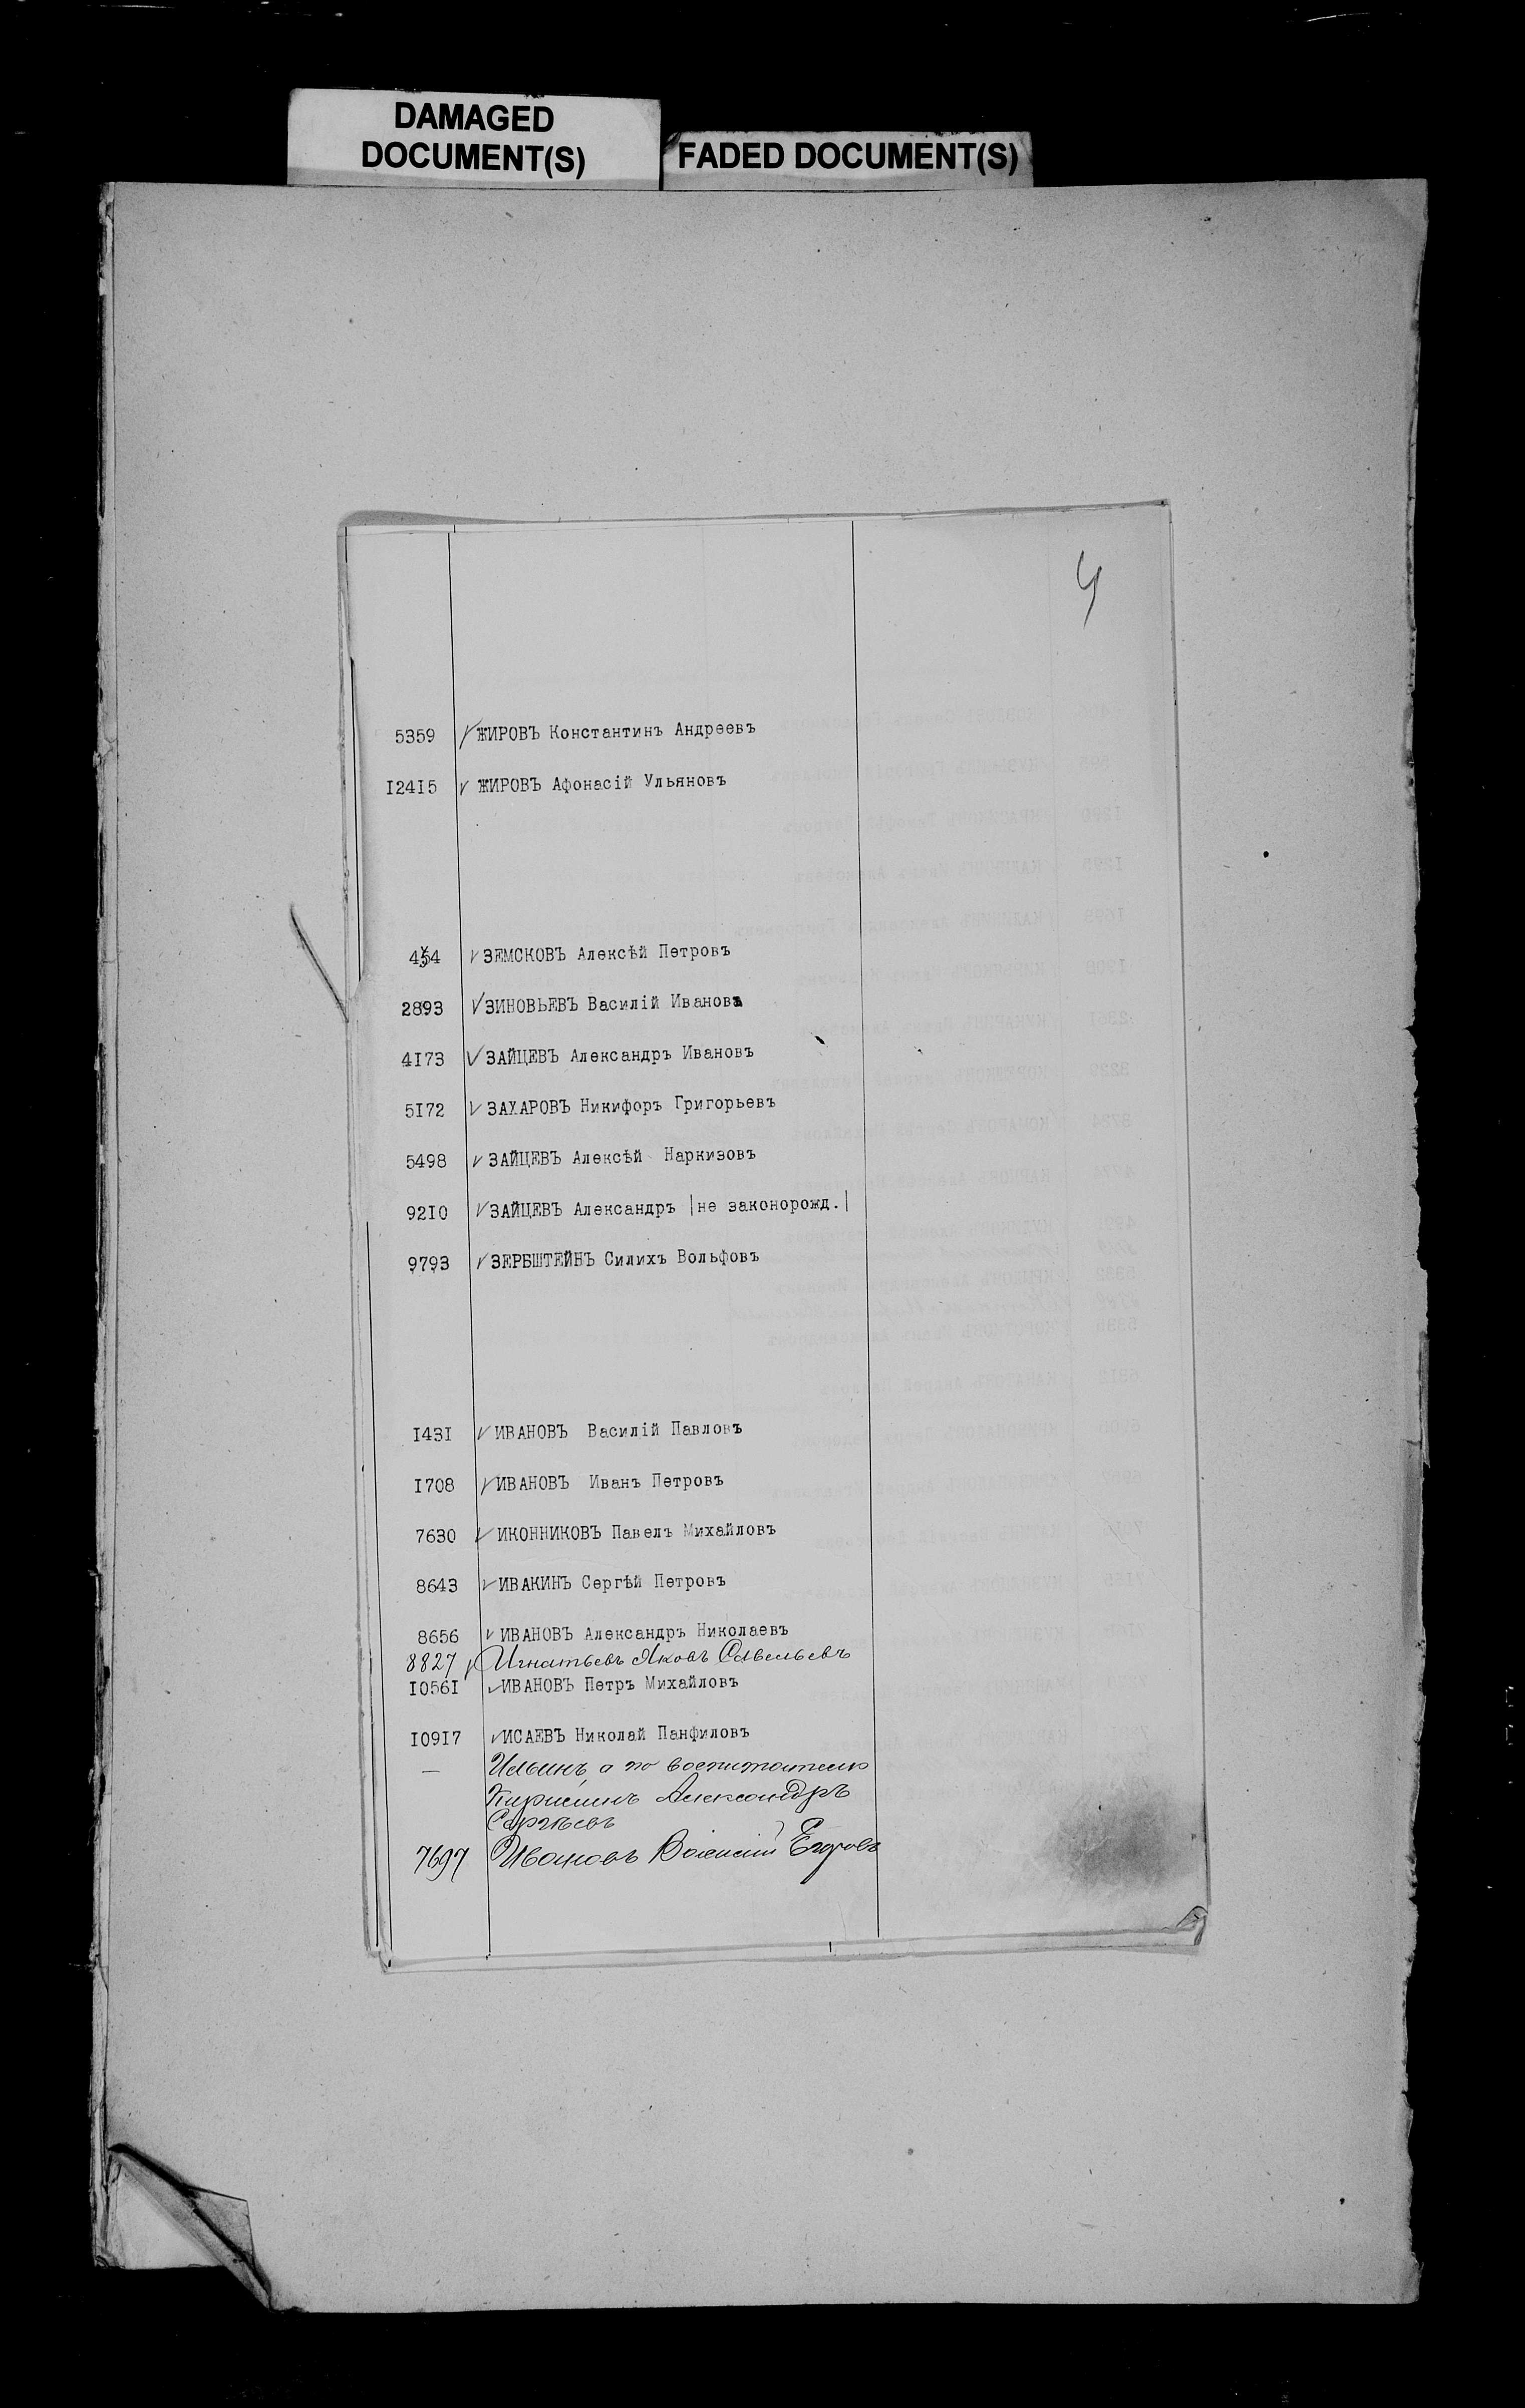 DAMAGED
DOCUMENT(S)
FADED DOCUMENT(S)
4
5359 ЖИРОВЪ Константинъ Андреевъ
I24I5 ЖИРОВЪ Афонасій Ульяновъ
454 ЗЕМСКОВЪ Алексѣй Петровъ
2893 ЗИНОВЬЕВЪ Василій Ивановъ
4I73 ЗАЙЦЕВЪ Александръ Ивановъ
5I72 ЗАХАРОВЪ Никифоръ Григорьевъ
5498 ЗАЙЦЕВЪ Алексѣй Наркизовъ
92I0 ЗАЙЦЕВЪ Александръ |не законорожд.|
9793 ЗЕРБШТЕЙНЪ Силихъ Вольфовъ
I43I ИВАНОВЪ Василій Павловъ
I708 ИВАНОВЪ Иванъ Петровъ
7630 ИКОННИКОВЪ Павелъ Михайловъ
8643 ИВАКИНЪ Сергѣй Петровъ
8656 ИВАНОВЪ Александръ Николаевъ
8827 Игнатьевъ Яковъ Савельевъ
I056I ИВАНОВЪ Петръ Михайловъ
I09I7 ИСАЕВЪ Николай Панфиловъ
— Ильинъ, а по воспитателю
Александръ
Сергѣевъ
7697 Ивановъ Василій Егоровъ